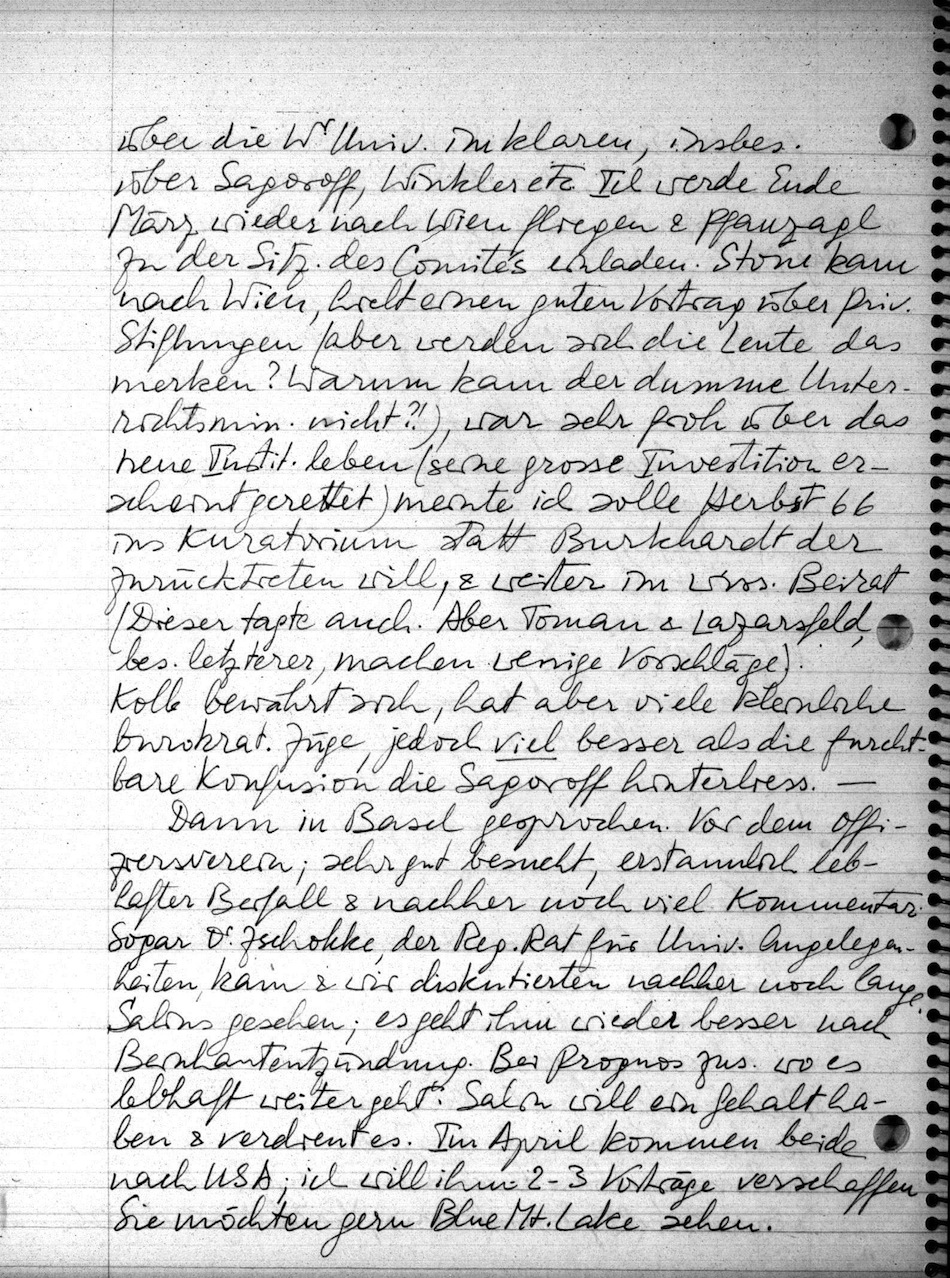 über die Wr Univ. im klaren, insbes.
über Sagoroff, Winkler etc. Ich werde Ende
März wieder nach Wien fliegen & Pfanzagl
zu der Sitz. des Comités einladen. Stone kam
nach Wien, hielt einen guten Vortrag über priv.
Stiftungen (aber werden sich die Leute das
merken? Warum kam der dumme Unter-
richtsmin. nicht?!), war sehr froh über das
neue Instit. leben (seine grosse Investition er-
scheint gerettet) meinte ich solle Herbst 66
ins Kuratorium statt Burkhardt der
zurücktreten will, & weiter im wiss. Beirat
(Dieser tagte auch. Aber Toman & Lazarsfeld,
bes. letzterer, machen wenige Vorschläge).
Kolb bewährt sich, hat aber viele kleinliche
burokrat. Züge, jedoch viel besser als die furcht-
bare Konfusion die Sagoroff hinterliess. —
Dann in Basel gesprochen. Vor dem Offi-
ziersverein; sehr gut besucht, erstaunlich leb-
hafter Beifall & nachher noch viel Kommentar.
Sogar Dr. Zschokke, der Reg. Rat für Univ. Angelegen-
heiten, kam & wir diskutierten nachher noch lange.
Salins gesehen; es geht ihm wieder besser nach
Beinhautentzündung. Bei Prognos zus. wo es
lebhaft weiter geht. Salin will ein Gehalt ha-
ben & verdient es. Im April kommen beide
nach USA; ich will ihm 2-3 Vorträge verschaffen
Sie möchten gern Blue Mt. Lake sehen.